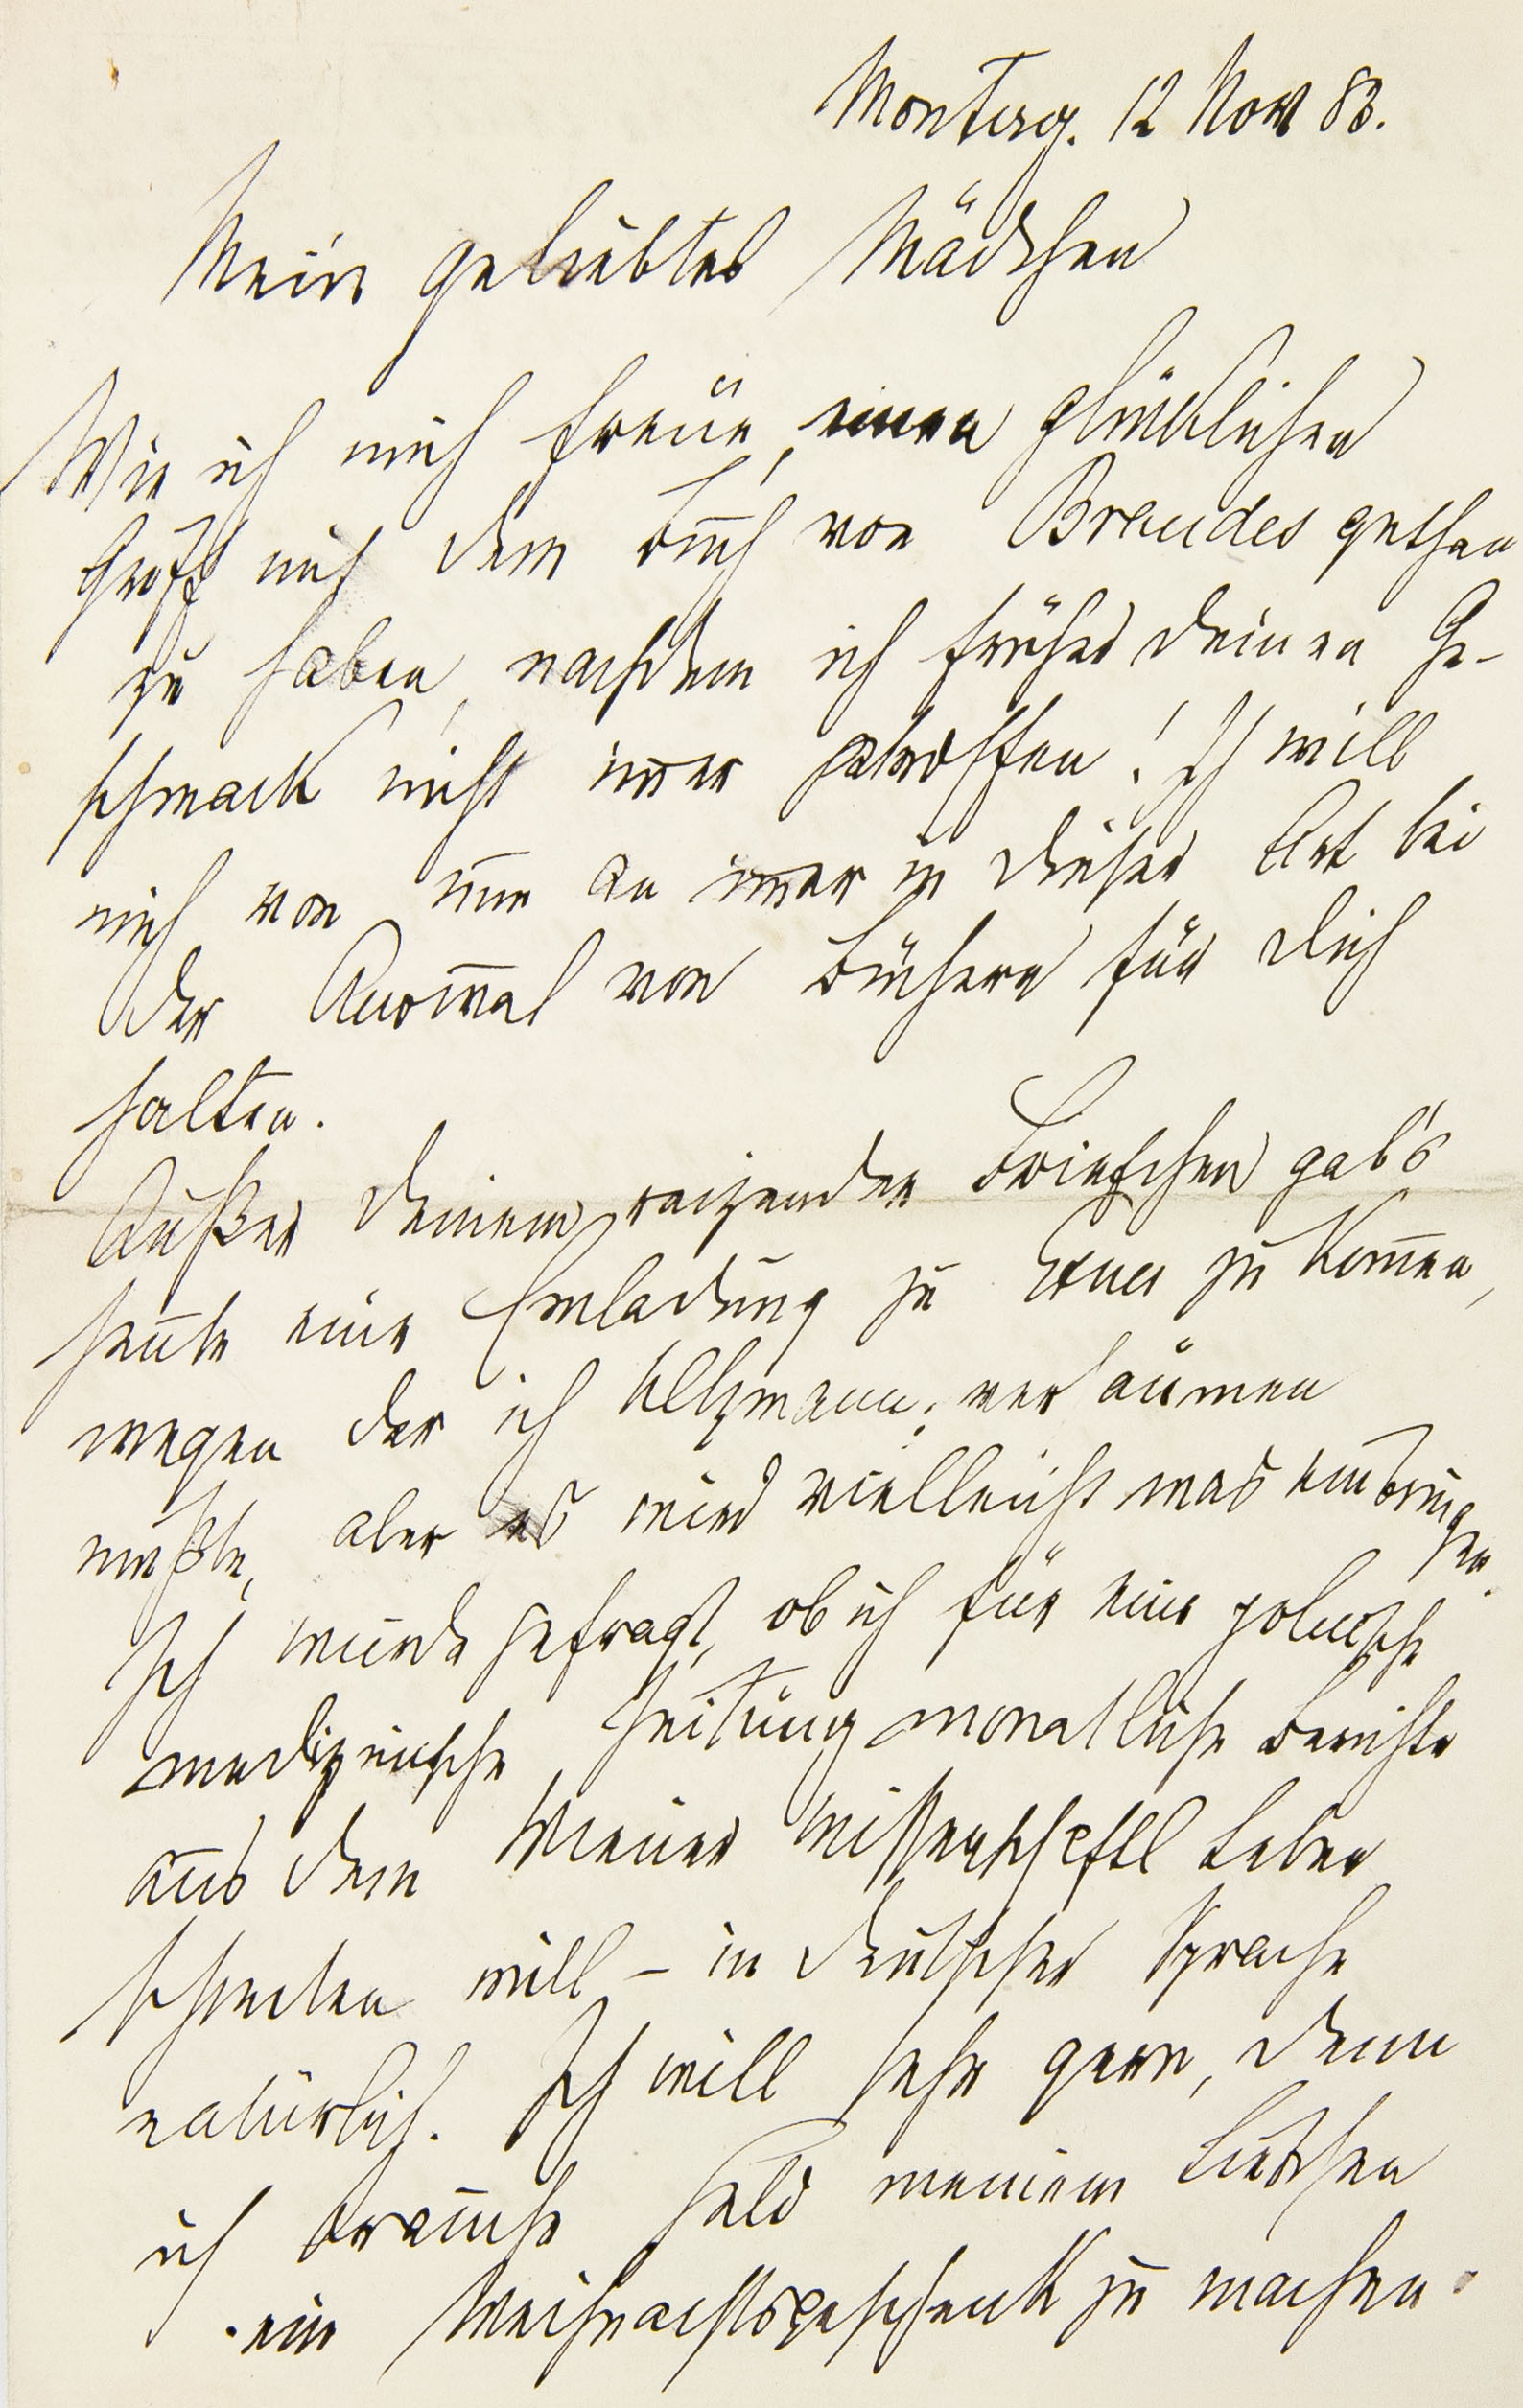 Montag. 12 Nov 83.
Mein geliebtes Mädchen
Wie ich mich freue, einen glücklichen
Griff mit dem Buch von Brandes gethan
zu haben, nachdem ich früher deinen Ge-
schmack nicht im̅er getroffen! Ich will
mich von nun an im̅er in dieser Art bei
der Auswal von Büchern für dich
halten.
Außer deinem reizenden Briefchen gab's
heute eine Einladung zu kom̅en,
wegen der ich Ultzmann; versäumen
mußte, aber es wird vielleicht was einbringen.
Ich wurde gefragt, ob ich für eine polnische
medizinische Zeitung monatliche Berichte
aus dem Wiener wissenschaftl Leben
schreiben will – in deutscher Sprache
natürlich. Ich will sehr gern, denn
ich brauche Geld meinem Liebchen
ein Weihnachtsgeschenk zu machen.